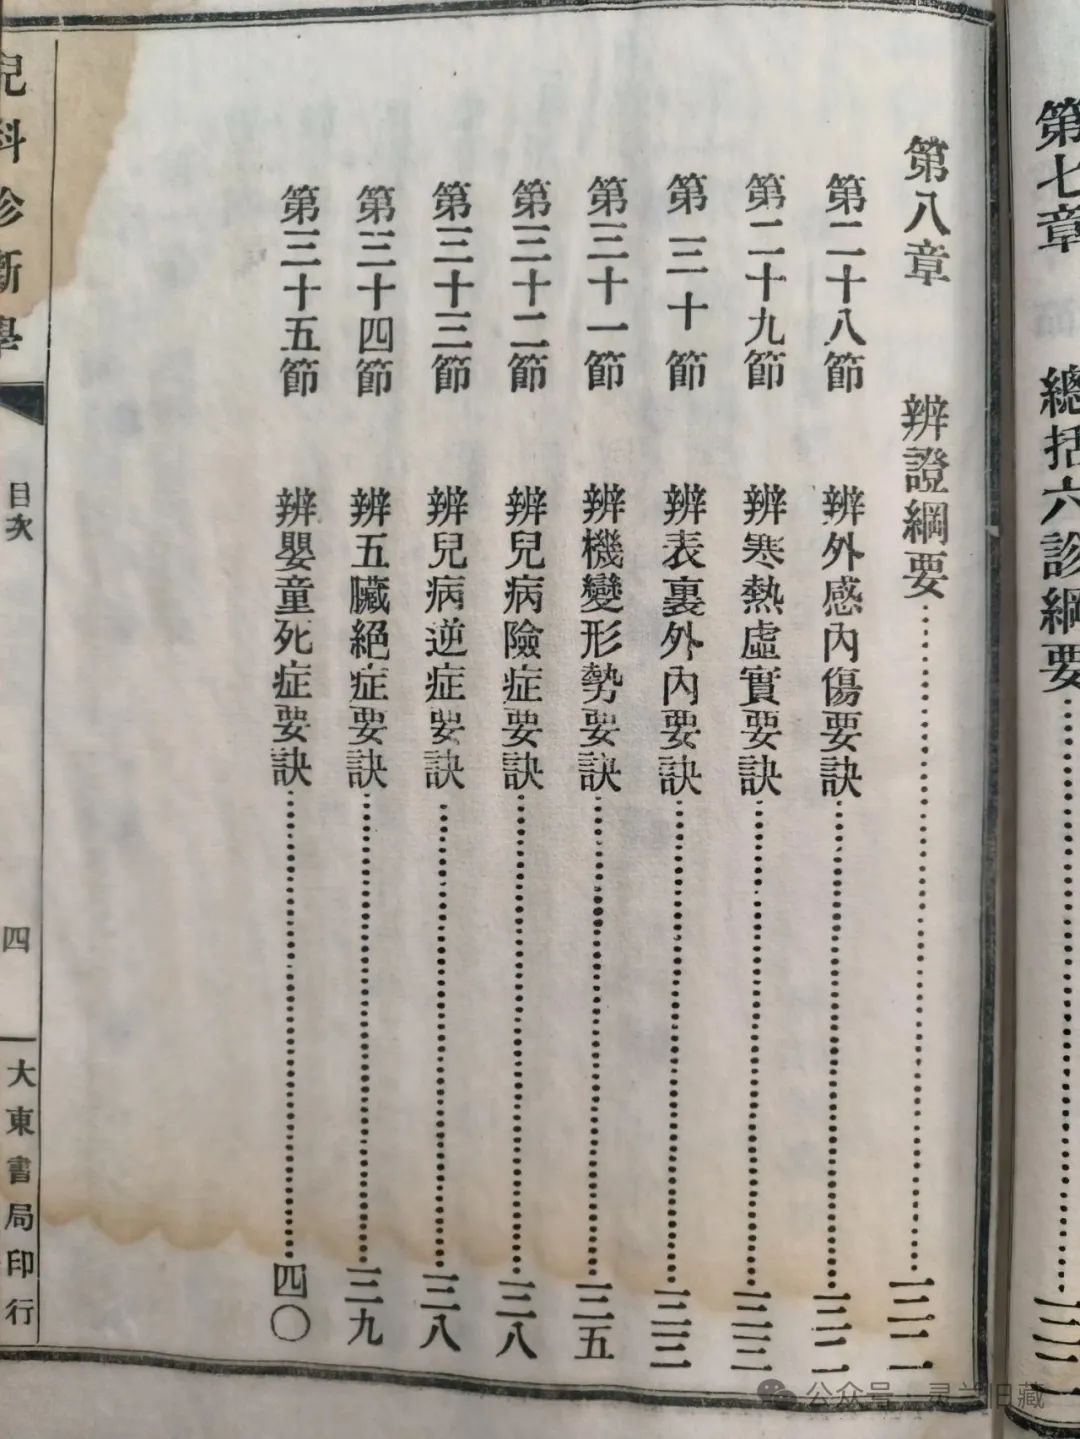 第七章　總括六診綱要
第八章　辨證綱要……三二
第二十八節　辨外感內傷要訣……三二
第二十九節　辨寒熱虛實要訣……三三
第三十節　辨表裏外內要訣……三三
第三十一節　辨機變形勢要訣……三五
第三十二節　辨兒病險症要訣……三八
第三十三節　辨兒病逆症要訣……三八
第三十四節　辨五臟絕症要訣……三九
第三十五節　辨嬰童死症要訣……四〇
兒科診斷學
目次
四
大東書局印行
公众号·灵兰旧藏